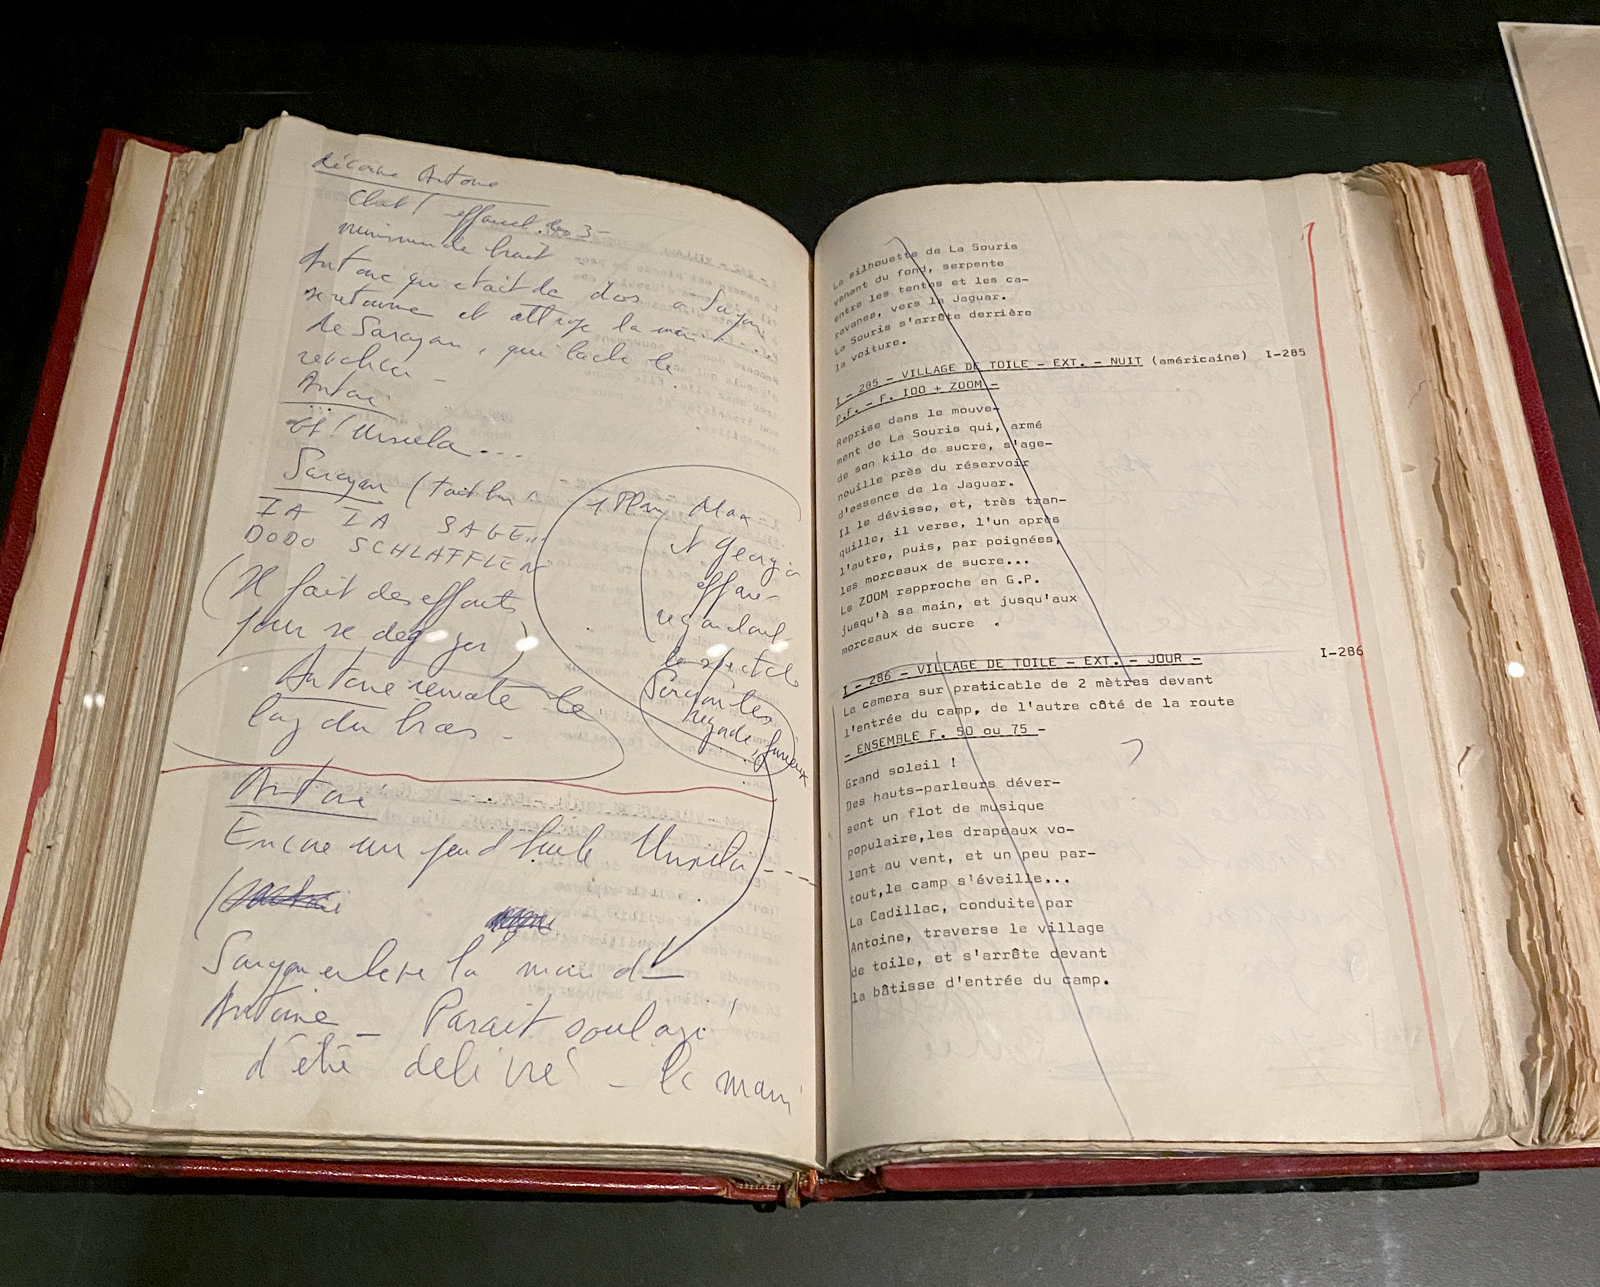 Antoine
effarel
Antoine qui était de dos a Sarayan
se retourne et attrape la main
de Sarayan, qui lache le
Antoine
Ursula...
Sarayan
IA IA SAGE..
DODO SCHLAFFLEN
(Il fait des efforts
pour se dégager)
Antoine remonte le
long du bras -
1 Plan Max
et Georgia
regardant
le spectacle
regarde, furieux
Antoine
Encore un peu d'huile Ursula ----
Sarayan enleve la main d'
Antoine - Parait soulagé
d'été délivré - la main
La silhouette de La Souris
venant du fond, serpente
entre les tentes et les ca-
ravanes, vers la Jaguar.
La Souris s'arrête derrière
la voiture.
I - 285 - VILLAGE DE TOILE - EXT. - NUIT (américaine) I-285
P.F. - F. 100 + ZOOM -
Reprise dans le mouve-
ment de La Souris qui, armé
de son kilo de sucre, s'age-
nouille près du réservoir
d'essence de la Jaguar.
Il le dévisse, et, très tran-
quille, il verse, l'un après
l'autre, puis, par poignées,
les morceaux de sucre...
Le ZOOM rapproche en G.P.
jusqu'à sa main, et jusqu'aux
morceaux de sucre .
I - 286 - VILLAGE DE TOILE - EXT. - JOUR - I-286
La camera sur praticable de 2 mètres devant
l'entrée du camp, de l'autre côté de la route
- ENSEMBLE F. 50 ou 75 -
Grand soleil !
Des hauts-parleurs déver-
sent un flot de musique
populaire,les drapeaux vo-
lent au vent, et un peu par-
tout,le camp s'éveille...
La Cadillac, conduite par
Antoine, traverse le village
de toile, et s'arrête devant
la bâtisse d'entrée du camp.